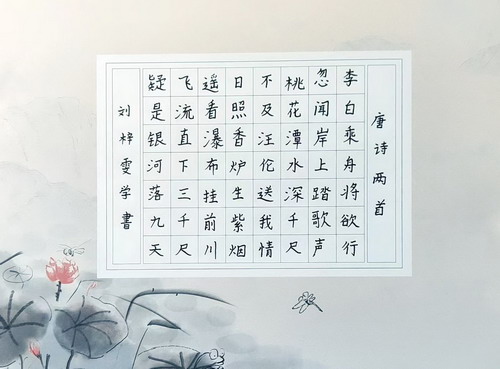 唐诗两首
李白乘舟将欲行
忽闻岸上踏歌声
桃花潭水深千尺
不及汪伦送我情
日照香炉生紫烟
遥看瀑布挂前川
飞流直下三千尺
疑是银河落九天
刘梓雯学書